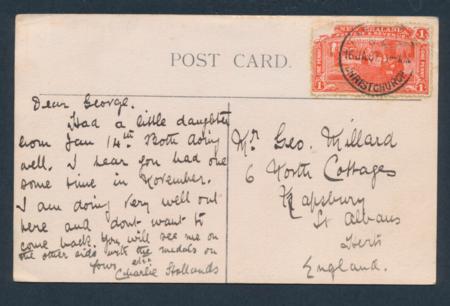 POST CARD.
NEW ZEALAND
1d
ONE PENNY
16 JA 07
CHRISTCHURCH
Dear George.
Had a little daughter
born Jan 14th Both doing
well. I hear you had one
some time in November.
I am doing very well out
here and dont want to
come back. You will see me on
the other side with the medals on
Your etc.
Charlie Hollands
Mr Geo. Millard
6 North Cottages
Napsbury
St Albans
Herts
England.